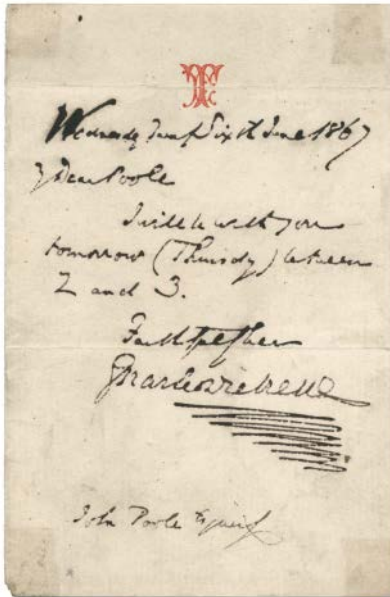 Wednesday Twenty Sixth June 1867
My Dear Poole
I will be with you
tomorrow (Thursday) between
2 and 3.
Faithfully yours
Charles Dickens
John Poole Esquire